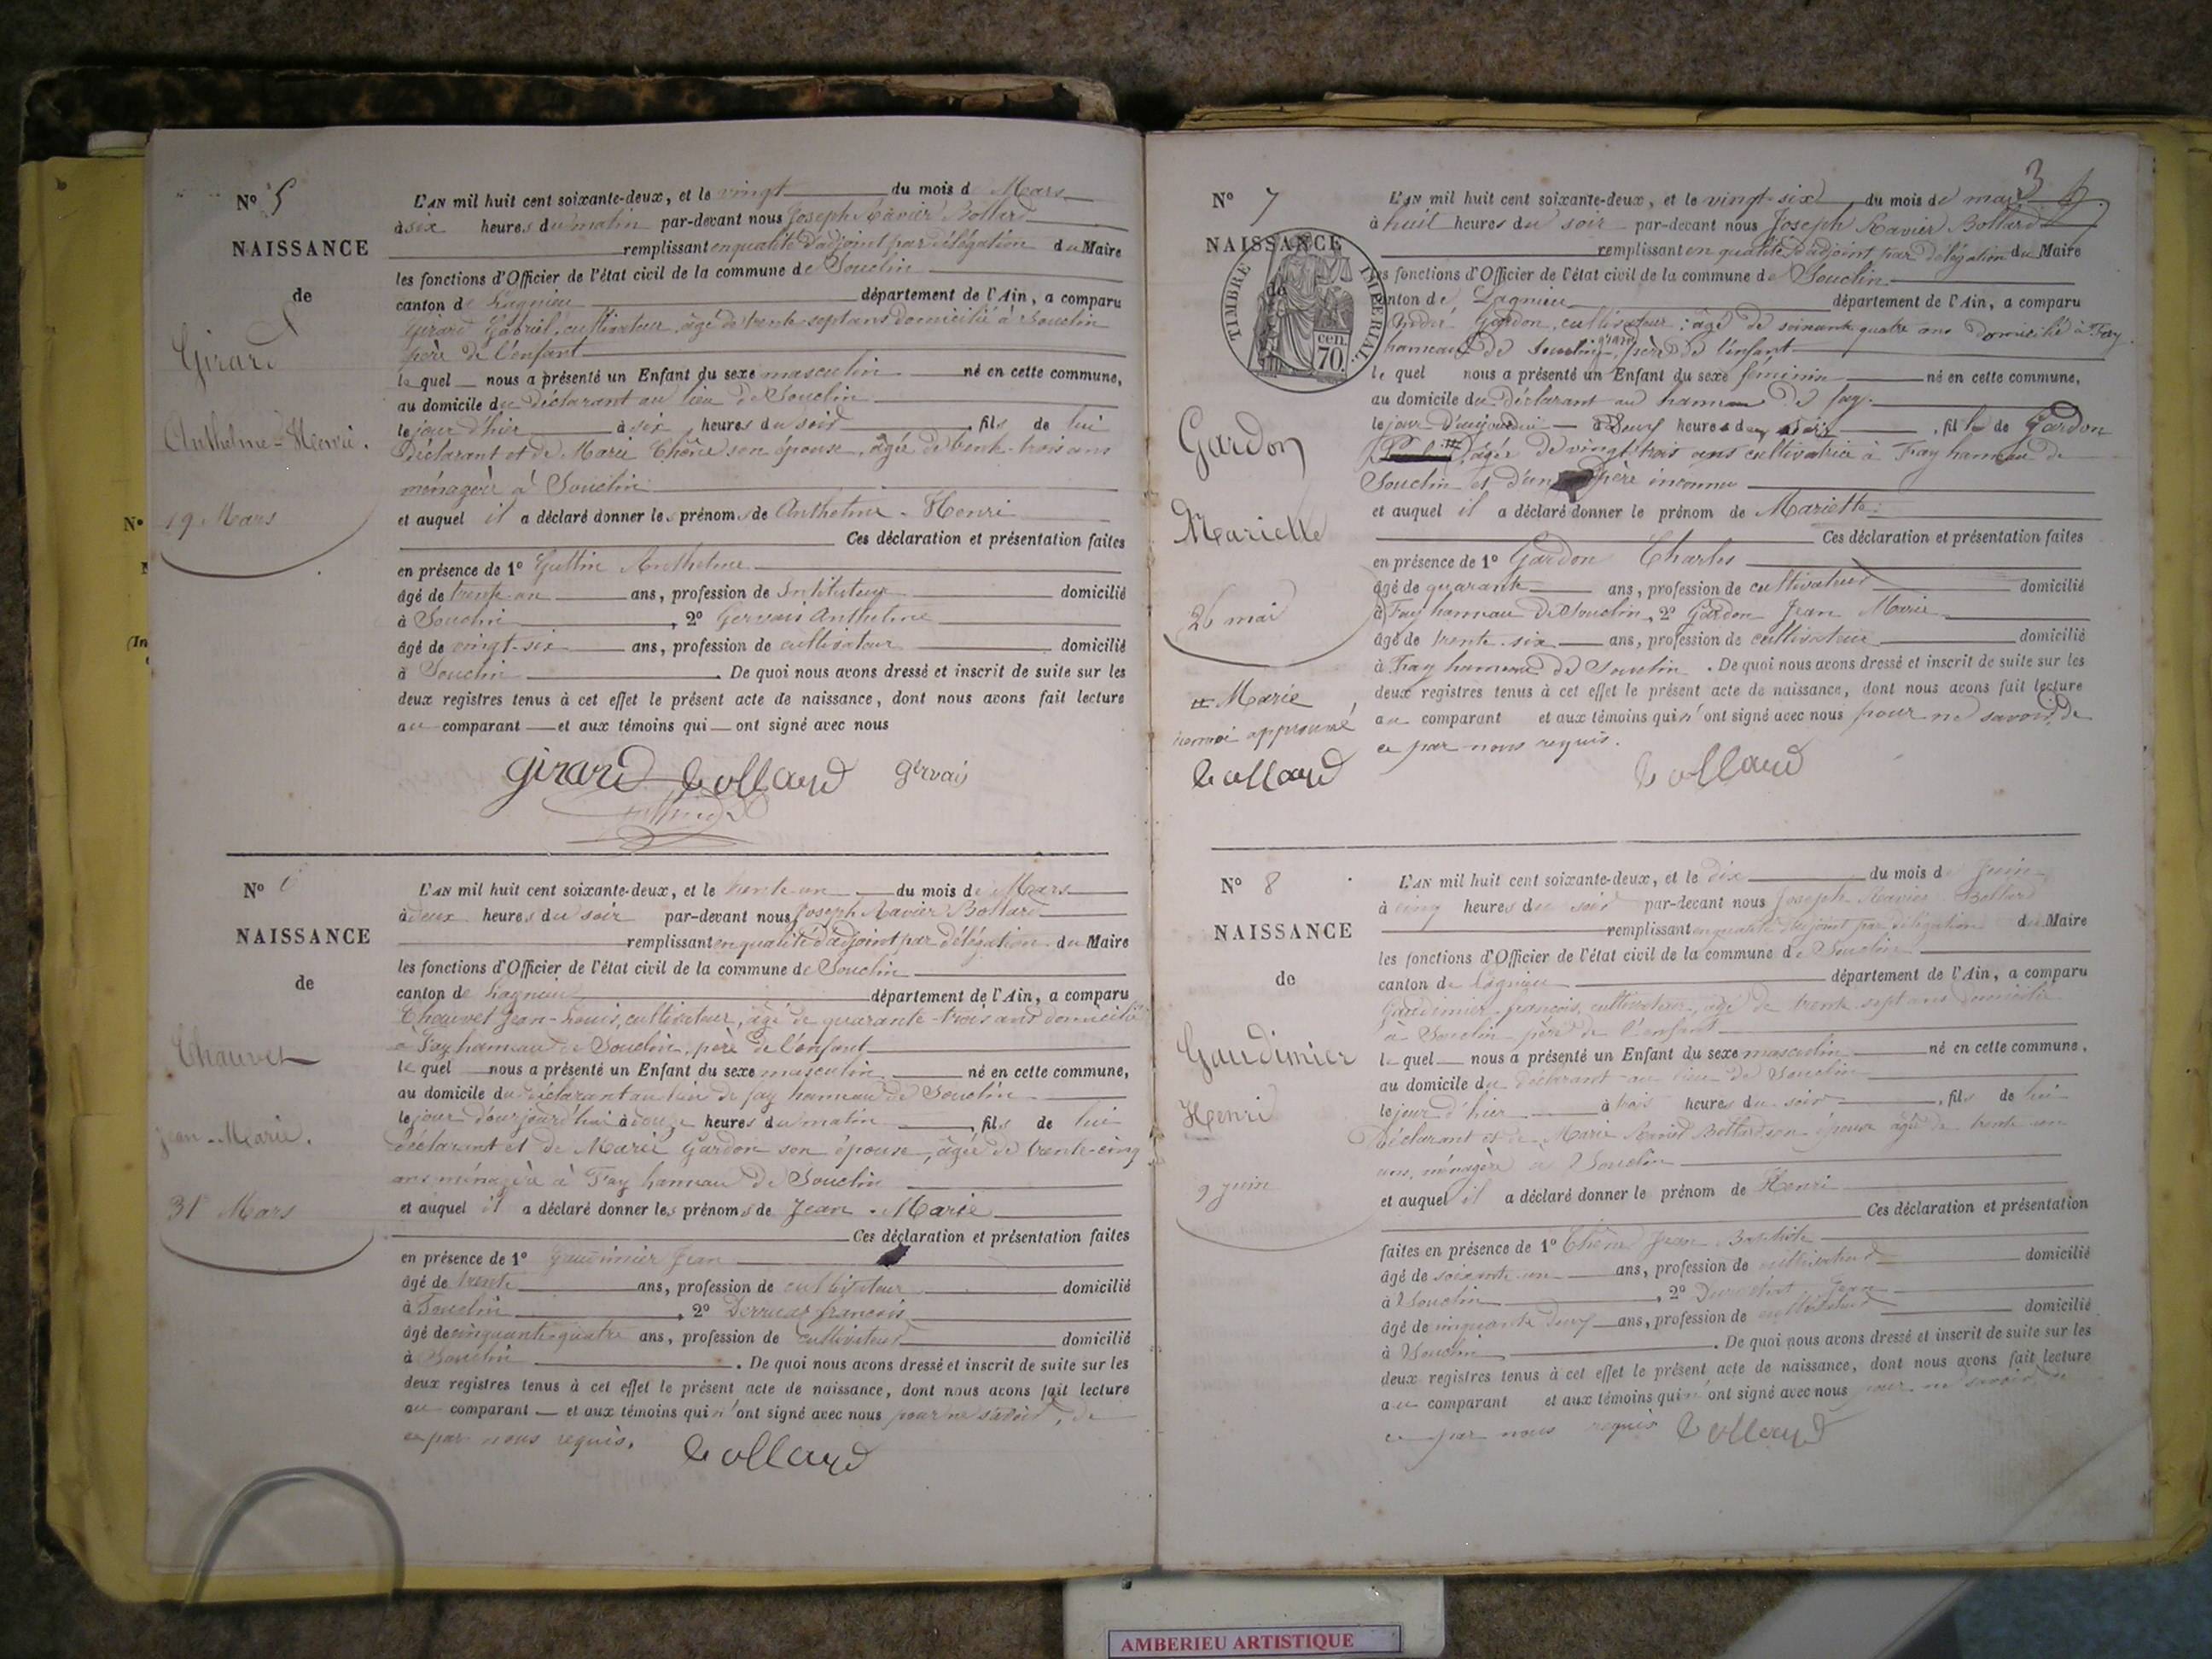 N° 5
NAISSANCE
de
Girard
Anthelme-Henri.
19 Mars
L'AN mil huit cent soixante-deux, et le vingt du mois de Mars
à six heures du matin par-devant nous Joseph Xavier Bollard
remplissant en qualité d'adjoint par délégation du Maire
les fonctions d'Officier de l'état civil de la commune de Souclin
canton de Lagnieu département de l'Ain, a comparu
Girard Gabriel, cultivateur, âgé de trente-sept ans domicilié à Souclin
père de l'enfant
le quel nous a présenté un Enfant du sexe masculin né en cette commune,
au domicile du déclarant au lieu de Souclin
le jour d'hier à six heures du soir, fils de lui
déclarant et de Marie Chêne son épouse, âgée de trente-trois ans
ménagère à Souclin
et auquel il a déclaré donner les prénoms de Anthelme-Henri
Ces déclaration et présentation faites
en présence de 1° Guttin Anthelme
âgé de trente-un ans, profession de Instituteur domicilié
à Souclin, 2° Gervais Anthelme
âgé de vingt-six ans, profession de cultivateur domicilié
à Souclin. De quoi nous avons dressé et inscrit de suite sur les
deux registres tenus à cet effet le présent acte de naissance, dont nous avons fait lecture
au comparant et aux témoins qui ont signé avec nous
Girard Bollard Gervais
N° 6
NAISSANCE
de
Chauvet
Jean-Marie.
31 Mars
L'AN mil huit cent soixante-deux, et le trente-un du mois de Mars
à deux heures du soir par-devant nous Joseph Xavier Bollard
remplissant en qualité d'adjoint par délégation du Maire
les fonctions d'Officier de l'état civil de la commune de Souclin
canton de Lagnieu département de l'Ain, a comparu
Chauvet Jean-Louis, cultivateur, âgé de quarante-trois ans domicilié
à Fay hameau de Souclin, père de l'enfant
le quel nous a présenté un Enfant du sexe masculin né en cette commune,
au domicile du déclarant au lieu de fay hameau de Souclin
le jour d'aujourd'hui à onze heures du matin, fils de lui
déclarant et de Marie Gardon son épouse, âgée de trente-cinq
ans ménagère à Fay hameau de Souclin
et auquel il a déclaré donner les prénoms de Jean-Marie
Ces déclaration et présentation faites
en présence de 1° Gaudinier Jean
âgé de trente ans, profession de cultivateur domicilié
à Souclin, 2° françois
âgé de cinquante-quatre ans, profession de cultivateur domicilié
à Souclin. De quoi nous avons dressé et inscrit de suite sur les
deux registres tenus à cet effet le présent acte de naissance, dont nous avons fait lecture
au comparant et aux témoins qui n'ont signé avec nous pour ne savoir, de
ce par nous requis.
Bollard
3
N° 7
NAISSANCE
de
TIMBRE IMPÉRIAL
cen. 70.
Gardon
Mariette
26 mai
# Marie
renvoi approuvé
Bollard
L'AN mil huit cent soixante-deux, et le vingt-six du mois de mai
à huit heures du soir par-devant nous Joseph Xavier Bollard
remplissant en qualité d'adjoint par délégation du Maire
les fonctions d'Officier de l'état civil de la commune de Souclin
canton de Lagnieu département de l'Ain, a comparu
André Gardon, cultivateur, âgé de soixante quatre ans domicilié à Fay
hameau de Souclin, grand père de l'enfant
le quel nous a présenté un Enfant du sexe féminin né en cette commune,
au domicile du déclarant au hameau de fay.
le jour d'aujourd'hui à deux heures du soir, fille de Gardon
# âgée de vingt trois ans cultivatrice à Fay hameau de
Souclin et d'un père inconnu
et auquel il a déclaré donner le prénom de Mariette
Ces déclaration et présentation faites
en présence de 1° Gardon Charles
âgé de quarante ans, profession de cultivateur domicilié
à Fay hameau de Souclin, 2° Gardon Jean Marie
âgé de trente-six ans, profession de cultivateur domicilié
à Fay hameau de Souclin. De quoi nous avons dressé et inscrit de suite sur les
deux registres tenus à cet effet le présent acte de naissance, dont nous avons fait lecture
au comparant et aux témoins qui n'ont signé avec nous pour ne savoir, de
ce par nous requis.
Bollard
N° 8
NAISSANCE
de
Gaudinier
Henri
9 juin
L'AN mil huit cent soixante-deux, et le dix du mois de Juin
à cinq heures du soir par-devant nous Joseph Xavier Bollard
remplissant en qualité d'adjoint par délégation du Maire
les fonctions d'Officier de l'état civil de la commune de Souclin
canton de Lagnieu département de l'Ain, a comparu
Gaudinier françois, cultivateur, âgé de trente-sept ans domicilié
à Souclin père de l'enfant
le quel nous a présenté un Enfant du sexe masculin né en cette commune,
au domicile du déclarant au lieu de Souclin
le jour d'hier à trois heures du soir, fils de lui
déclarant et de Marie Bollard son épouse âgée de trente un
ans, ménagère à Souclin
et auquel il a déclaré donner le prénom de Henri
Ces déclaration et présentation
faites en présence de 1° Chêne Jean Baptiste
âgé de soixante-un ans, profession de cultivateur domicilié
à Souclin, 2° Jean
âgé de cinquante deux ans, profession de cultivateur domicilié
à Souclin. De quoi nous avons dressé et inscrit de suite sur les
deux registres tenus à cet effet le présent acte de naissance, dont nous avons fait lecture
au comparant et aux témoins qui n'ont signé avec nous pour ne savoir de
ce par nous requis Bollard
AMBERIEU ARTISTIQUE